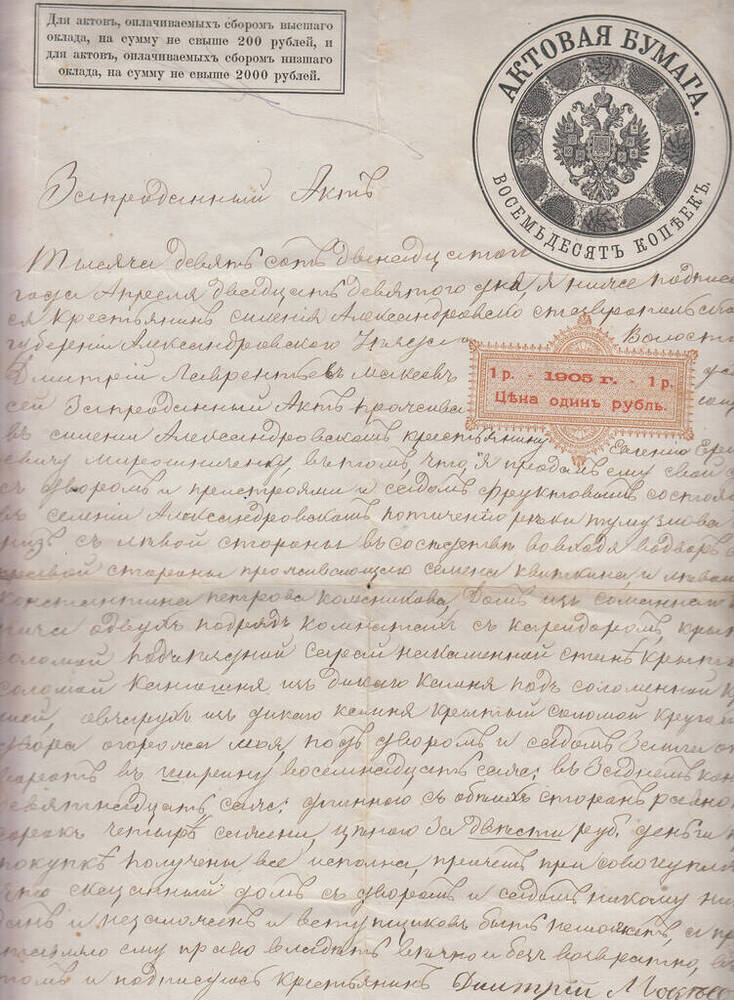 Для актовъ, оплачиваемыхъ сборомъ высшаго
оклада, на сумму не свыше 200 рублей, и
для актовъ, оплачиваемыхъ сборомъ низшаго
оклада, на сумму не свыше 2000 рублей.
АКТОВАЯ БУМАГА.
ВОСЕМЬДЕСЯТЪ КОПѢЕКЪ.
Запроданный Актъ
Тысяча девять сотъ двенадцатого
года Апреля двадцать девятого дня, я ниже подписа
ся крестьянинъ селенія Александровско Ставропольско
губерніи Александровского Уезда Волост
1 р. - 1905 г. - 1 р.
Цѣна одинъ рубль.
Дмитрій Лаврентьевъ Макеевъ
сей Запроданный Актъ прожива
въ селении Александровскомъ крестьянину Евгению
евичу Мирошниченку, въ томъ, что я продалъ ему свой
съ двором и пристроями и садомъ фруктовымъ состоя
въ селении Александровскомъ по течению реки Тумузлова
низ съ левой стороны въ соседстви во входя в дворъ
правой стороны проживающего Семена Квиткина, и левой
Константина Петрова Колесникова, Домъ изъ саманнаго
пича о двухъ подрядъ комнатахъ съ каридоромъ, крыт
соломой сарай на каменной стенѣ крыт
соломой из дикаго камня под соломенной
шей, изъ дикаго камня крытый соломой кругом
двора огорожа моя, подъ дворомъ и садомъ Земли
въ ширину восемнадцать саж; въ Заднемъ кон
девятнадцать саж; длинною съ обеихъ сторонъ равно
сорокъ четыре сажени, ценою За двести руб, деньги
покупкѣ получены все исполна, причемъ
что сказанный домъ съ дворомъ и садомъ никому
данъ и незаложенъ и быть неможетъ, а
ему право владеть вечно и безъ возвратно, въ
томъ и подписуюсь крестьянинъ Дмитрій